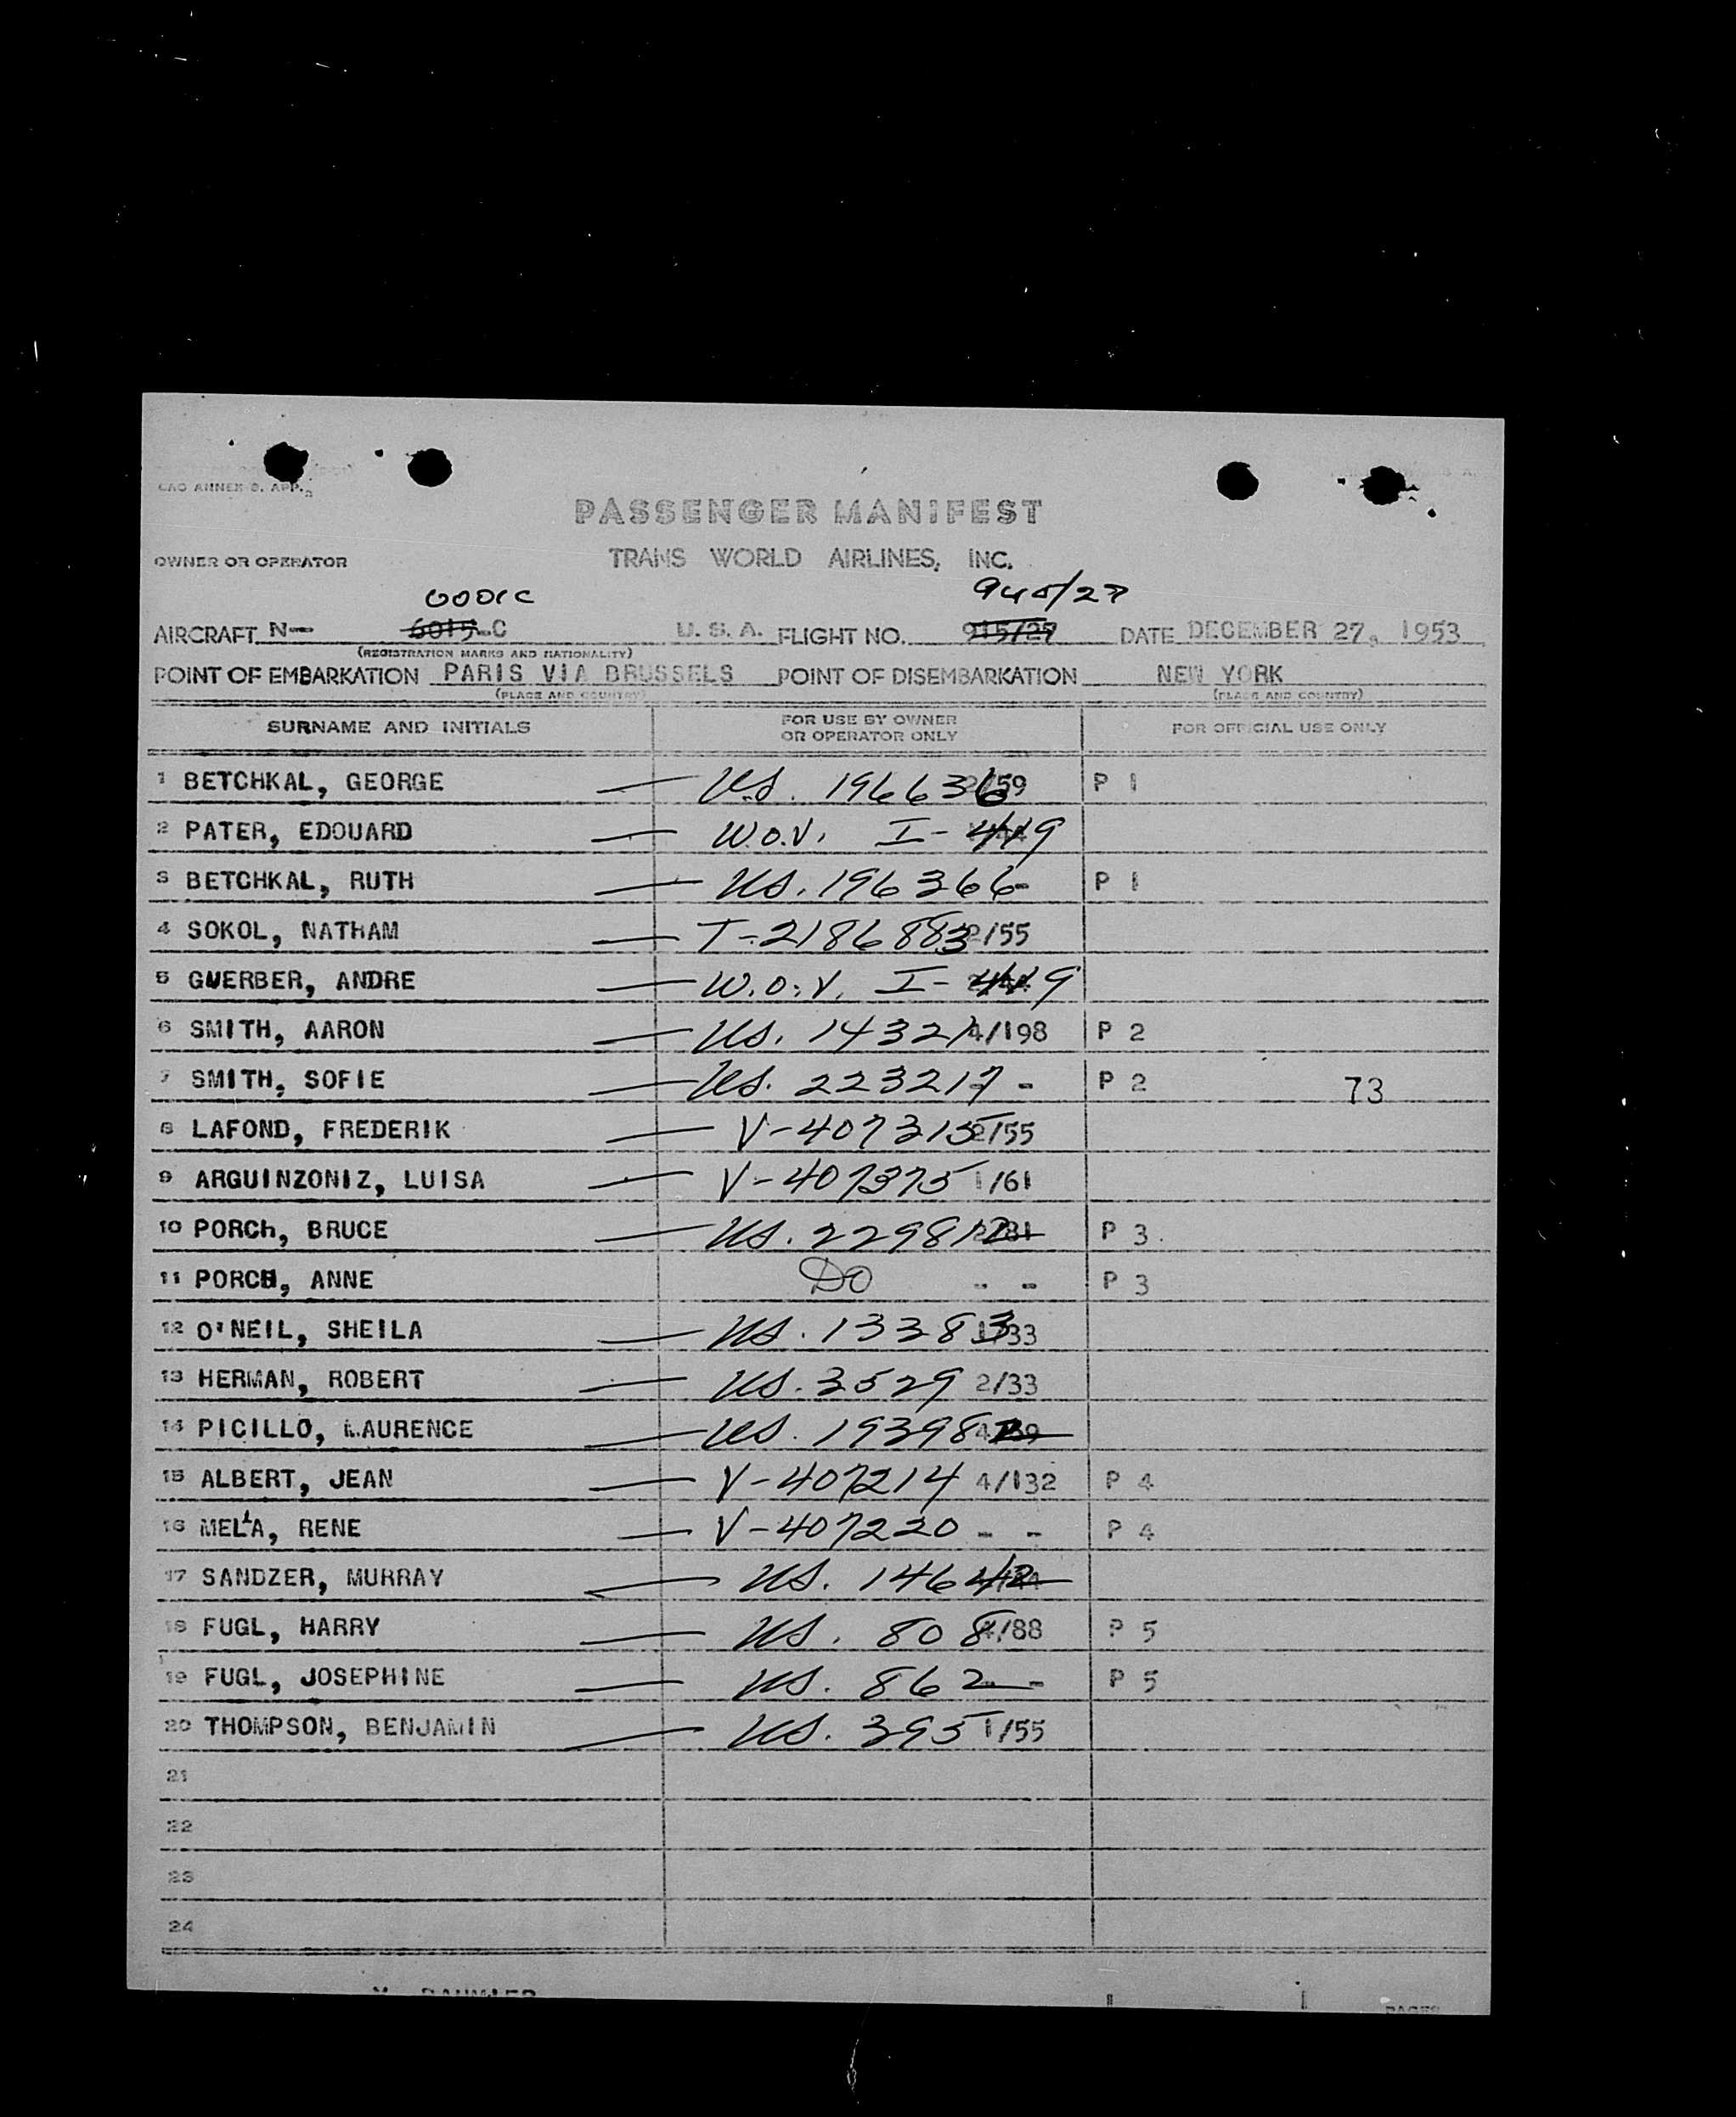 PASSENGER MANIFEST
OWNER OR OPERATOR TRANS WORLD AIRLINES, INC.
945/27
AIRCRAFT N- 6015-C U. S. A. FLIGHT NO. 915/27 DATE DECEMBER 27, 1953
(REGISTRATION MARKS AND NATIONALITY)
POINT OF EMBARKATION PARIS VIA BRUSSELS POINT OF DISEMBARKATION NEW YORK
(PLACE AND COUNTRY) (PLACE AND COUNTRY)
SURNAME AND INITIALS FOR USE BY OWNER OR OPERATOR ONLY FOR OFFICIAL USE ONLY
1 BETCHKAL, GEORGE — US. 196636 /59 P 1
2 PATER, EDOUARD — W.O.V. I-419
3 BETCHKAL, RUTH — US. 196366 P 1
4 SOKOL, NATHAM — T-2186883 2/55
5 GUERBER, ANDRE — W.O.V. I-419
6 SMITH, AARON — US. 14321 4/198 P 2
7 SMITH, SOFIE — US. 223217 - P 2 73
8 LAFOND, FREDERIK — V-407315 2/55
9 ARGUINZONIZ, LUISA — V-407375 1/61
10 PORCh, BRUCE — US. 229812 P 3
11 PORCH, ANNE DO - - P 3
12 O'NEIL, SHEILA — US. 13383 /33
13 HERMAN, ROBERT — US. 3529 2/33
14 PICILLO, LAURENCE — US. 193982
15 ALBERT, JEAN — V-407214 4/132 P 4
16 MELIA, RENE — V-407220 - - P 4
17 SANDZER, MURRAY — US. 14642
18 FUGL, HARRY — US. 808 4/88 P 5
19 FUGL, JOSEPHINE — US. 862 - P 5
20 THOMPSON, BENJAMIN — US. 395 1/55
21
22
23
24